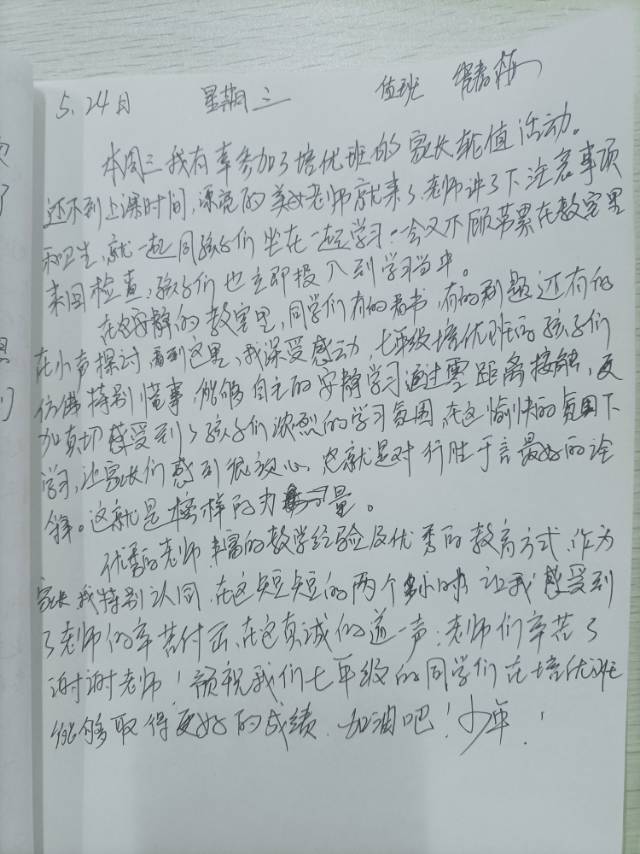 5.24日 星期三 值班
本周三我有幸参加了培优班的家长轮值活动。
还不到上课时间,漂亮的美女老师就来了老师讲了下注意事项
和卫生,就一起同孩子们坐在一起学习.一会又不顾劳累在教室里
来回检查,孩子们也立即投入到学习当中。
在安静的教室里,同学们有的看书,有的刷题还有的
在小声探讨 看到这里,我深受感动,七年级培优班的孩子们
仿佛特别懂事,能够自主的安静学习 通过零距离接触,更
加真切感受到了孩子们浓烈的学习氛围,在这愉快的氛围下
学习,让家长们感到很放心,也就是对行胜于言最好的诠
释。这就是榜样的力量。
优秀的老师 丰富的教学经验及优秀的教育方式,作为
家长我特别认同,在这短短的两个小时 让我感受到
了老师的辛苦付出,在这真诚的道一声:老师们辛苦了
谢谢老师!预祝我们七年级的同学们在培优班
能够取得更好的成绩.加油吧!少年!